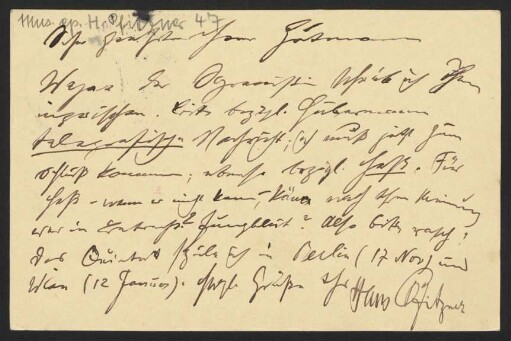 Mus. ep. H. Pfitzner 47
Sehr geehrter Herr Gutmann
Wegen der Organistin schrieb ich Ihnen
inzwischen. Bitte bezgl. Hubermann
telegrafische Nachricht; ich muß jetzt zum
Schluß kommen; ebenso bezgl. Heß. Für
Heß - wenn er nicht kann, käme nach Ihrer Meinung
wer in Betracht? Jungblut? Also bitte rasch!
Das Quintett spiele ich in Berlin (17 Nov) und
Wien (12 Januar). Herzl. Grüße Ihr Hans Pfitzner